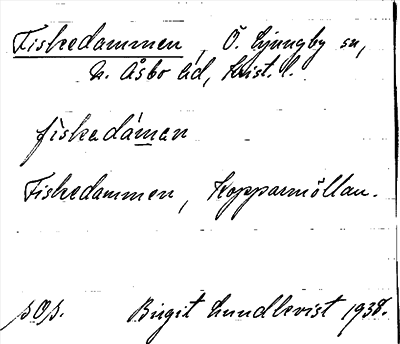 Fiskedammen, Ö. Ljungby sn,
N. Åsbo hd, Krist. l.
fiskedámen
Fiskedammen, Kopparmöllan.
sOp. Birgit Lundkvist 1938.